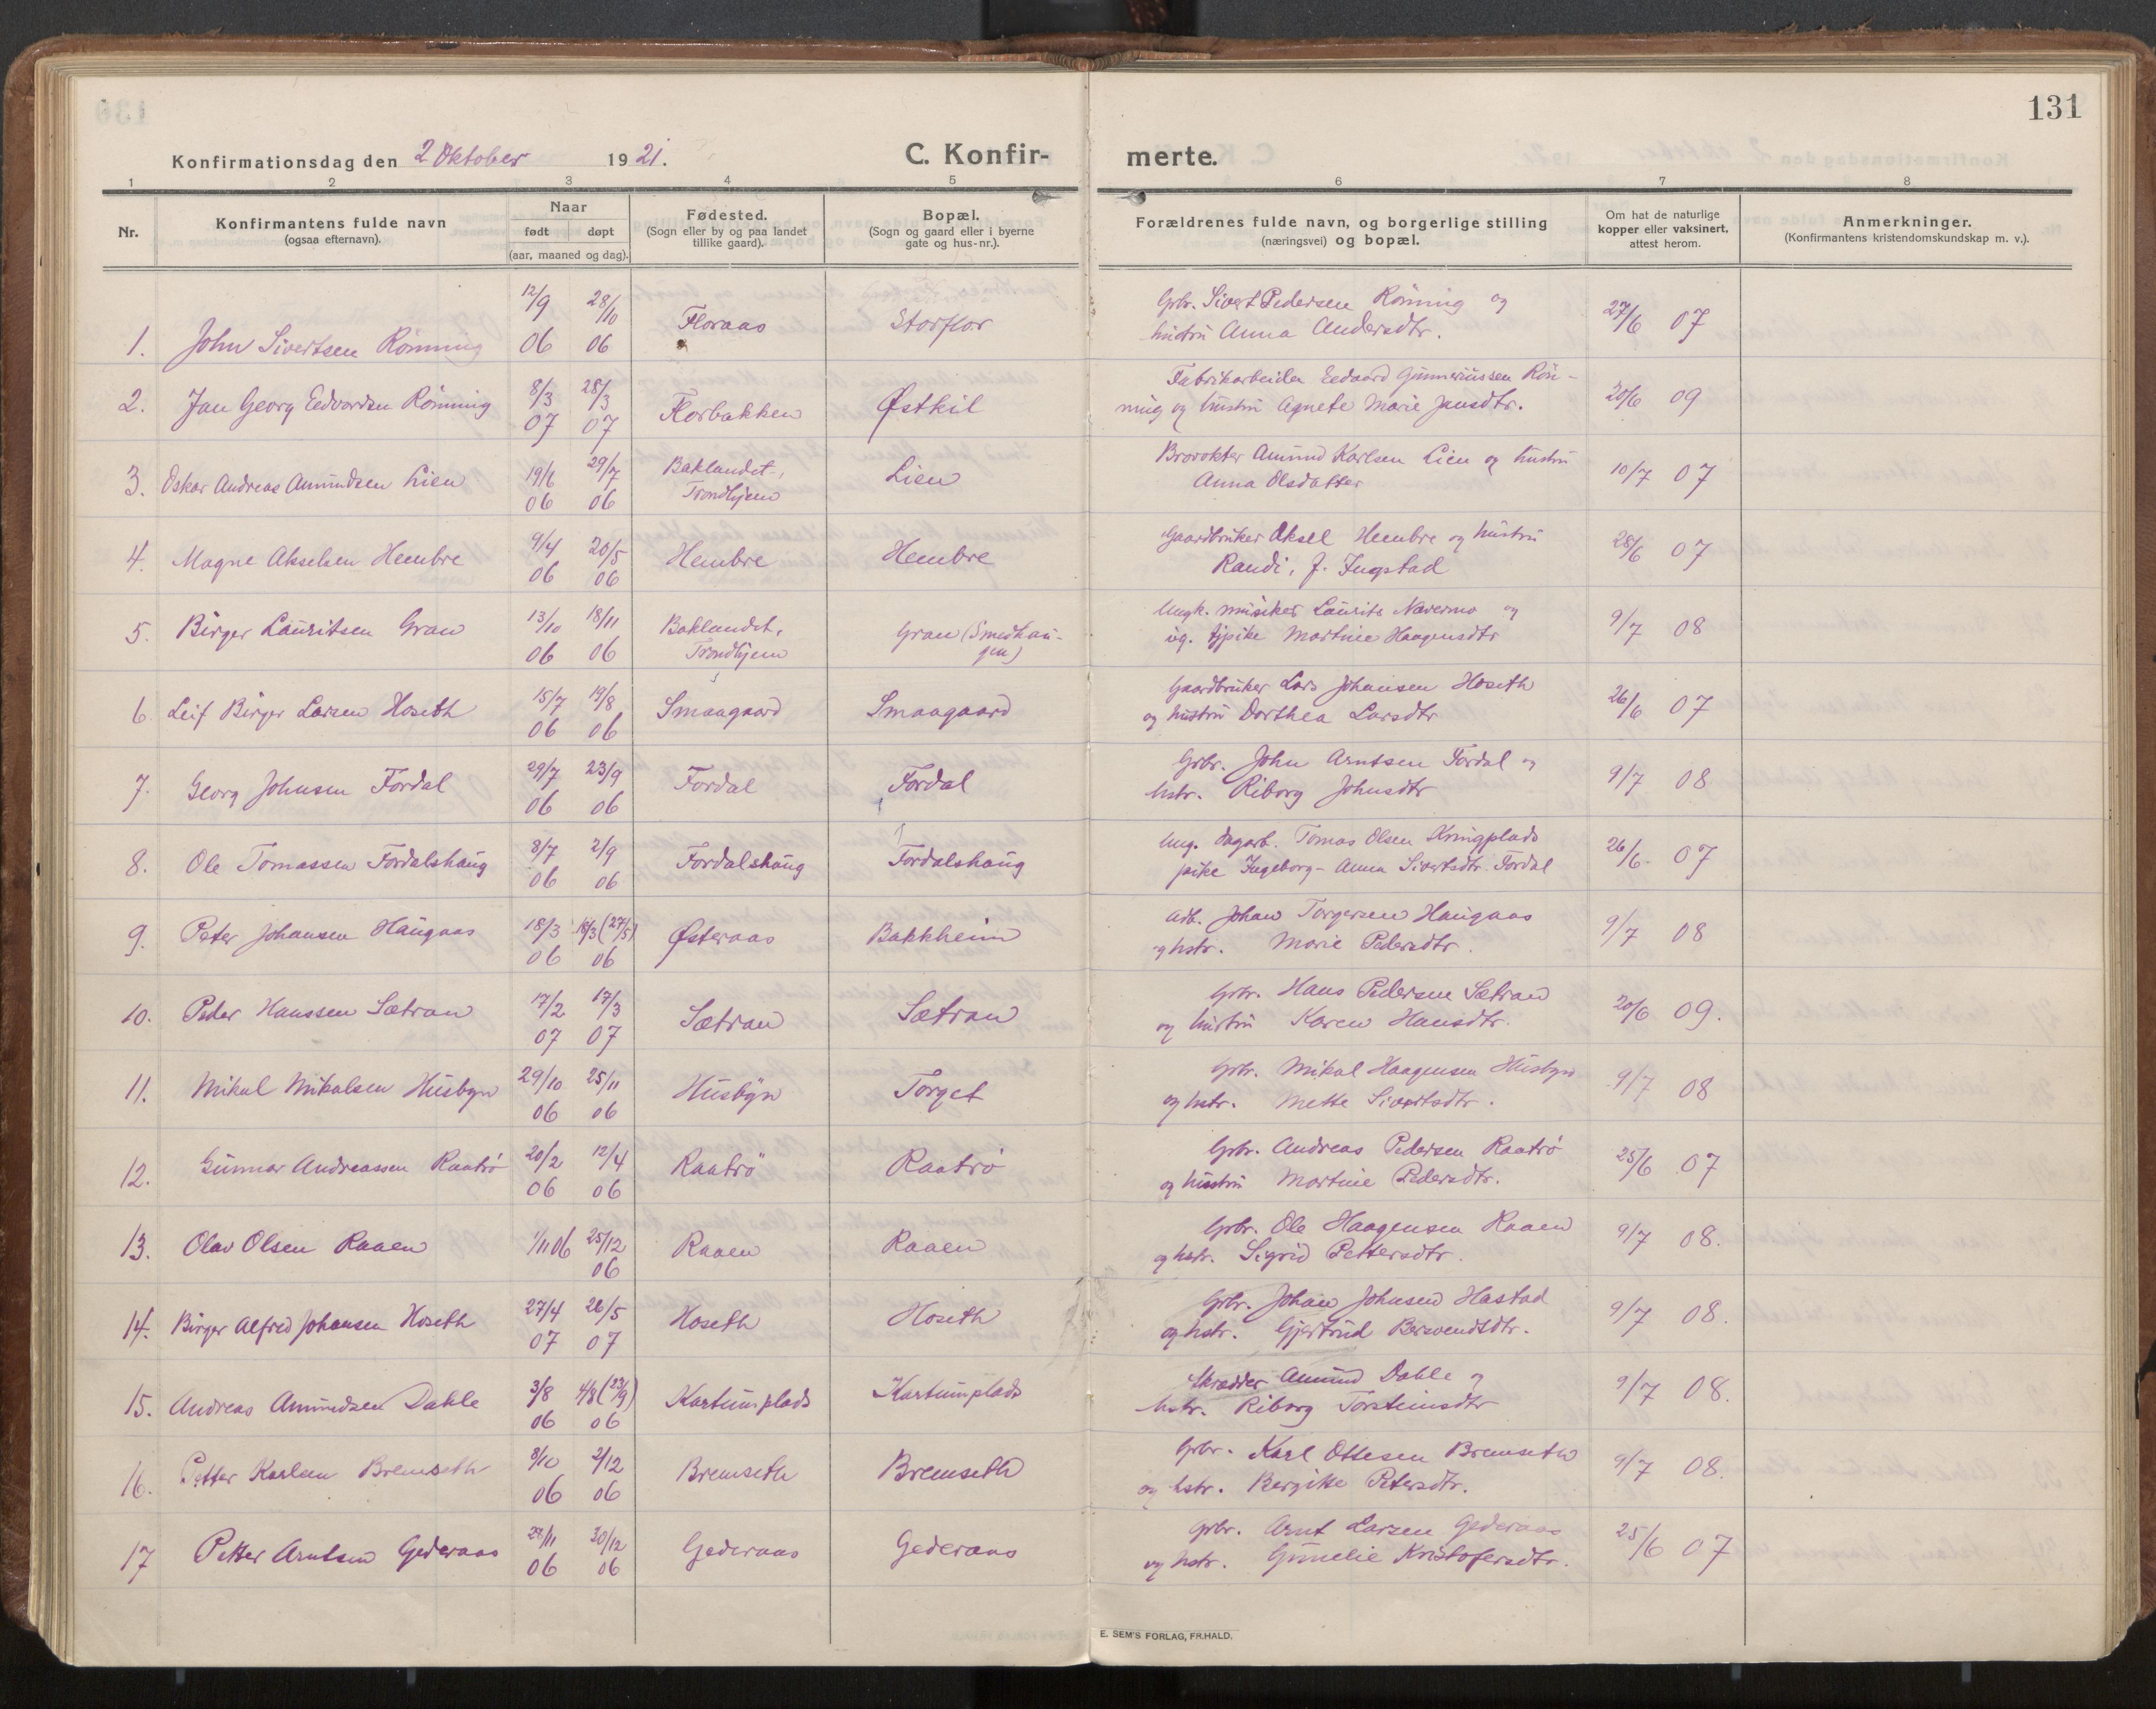 131
Konfirmationsdag den 2 Oktober 1921. C. Konfir- merte.
1 2 3 4 5 6 7 8
Nr. Konfirmantens fulde navn (ogsaa efternavn). Naar født døpt (aar, maaned og dag). Fødested. (Sogn eller by og paa landet tillike gaard). Bopæl. (Sogn og gaard eller i byerne gate og hus-nr.). Forældrenes fulde navn, og borgerlige stilling (næringsvei) og bopæl. Om hat de naturlige kopper eller vaksinert, attest herom. Anmerkninger. (Konfirmantens kristendomskundskap m. v.).
1. John Sivertsen Rönning 12/9 06 28/10 06 Floraas Storflor Grbr. Sivert Pedersen Rönning og
hustru Anna Andersdtr. 27/6 07
2. Jan Georg Edvardsen Rönning 8/3 07 28/3 07 Florbakken Østkil Fabrikarbeider Edvard Gunneriussen Rön-
ning og hustru Agnete Marie Jensdtr. 20/6 09
3. Oskar Andreas Amundsen Lien 19/6 06 29/7 06 Baklandet, Trondhjem Lien Brovokter Amund Karlsen Lien og hustru
Anna Olsdatter 10/7 07
4. Magne Akselsen Hembre 9/4 06 20/5 06 Hembre Hembre Gaardbruker Aksel Hembre og hustru
Randi, f. Ingstad 28/6 07
5. Birger Lauritsen Gran 13/10 06 18/11 06 Baklandet, Trondhjem Gran (Smedhau-
gen) Ungk. musiker Laurits Nævermo og
ug. tjpike Martine Haagensdtr 9/7 08
6. Leif Birger Larsen Hoseth 15/7 06 19/8 06 Smaagaard Smaagaard Gaardbruker Lars Johansen Hoseth
og hustru Dorthea Larsdtr 26/6 07
7. Georg Johnsen Fordal 29/7 06 23/9 06 Fordal Fordal Grbr. John Arntsen Fordal og
hstr. Riborg Johnsdtr 9/7 08
8. Ole Tomassen Fordalshaug 8/7 06 2/9 06 Fordalshaug Fordalshaug Ung. dagarb. Tomas Olsen Kringplads
pike Ingeborg-Anna Sivertsdtr. Fordal 26/6 07
9. Peter Johansen Haugaas 18/3 06 18/3 (27/5) 06 Østeraas Bakkheim Arb. Johan Torgersen Haugaas
og hstr. Marie Pedersdtr. 9/7 08
10. Peder Hanssen Sætran 17/2 07 17/3 07 Sætran Sætran Grbr. Hans Pedersen Sætran
og hustru Karen Hansdtr. 20/6 09.
11. Mikal Mikalsen Husbyn 29/10 06 25/11 06 Husbyn Torget Grbr. Mikal Haagensen Husbyn
og hstr. Mette Sivertsdtr. 9/7 08
12. Gunnar Andreassen Raatrö 20/2 06 12/4 06 Raatrö Raatrö Grbr. Andreas Pedersen Raatrö
og hustru Martine Pedersdtr. 25/6 07
13. Olav Olsen Raaen 1/11 06 25/12 06 Raaen Raaen Grbr. Ole Haagensen Raaen
og hstr. Sigrid Pettersdtr. 9/7 08.
14. Birger Alfred Johansen Hoseth 27/4 07 26/5 07 Hoseth Hoseth Grbr. Johan Johnsen Hastad
og hstr. Gjertrud Bersvendsdtr. 9/7 08.
15. Andreas Amundsen Dahle 3/8 06 4/8 (23/9) 06 Kartumplads Kartumplads Skrædder Amund Dahle og
hstr. Riborg Torsteinsdtr 9/7 08.
16. Petter Karlsen Bremseth 8/10 06 2/12 06 Bremseth Bremseth Grbr. Karl Ottesen Bremseth
og hstr. Bergitte Petersdtr. 9/7 08.
17 Petter Arntsen Gederaas 28/11 06 30/12 06 Gederaas Gederaas Grbr. Arnt Larsen Gederaas
og hstr. Gunelie Kristofersdtr. 25/6 07
E. SEM'S FORLAG, FR.HALD.